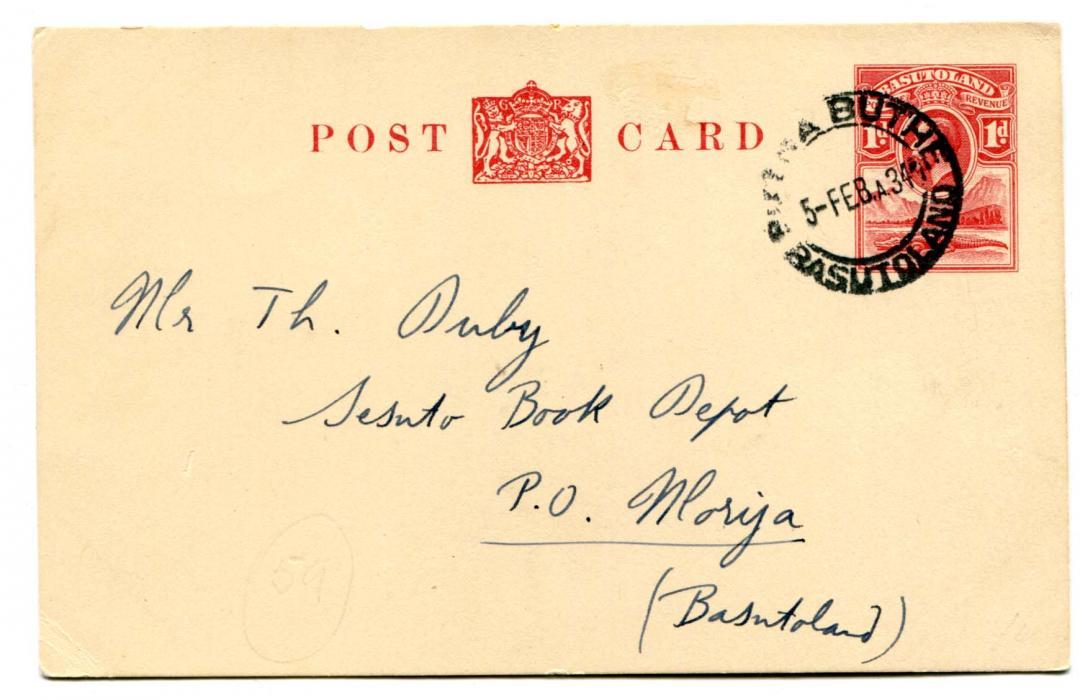 POST CARD
G R
BASUTOLAND
POSTAGE REVENUE
1d 1d
BUTHA BUTHE
5-FEB.A.34
BASUTOLAND
Mr Th. Duby
Sesuto Book Depot
P.O. Morija
(Basutoland)
59